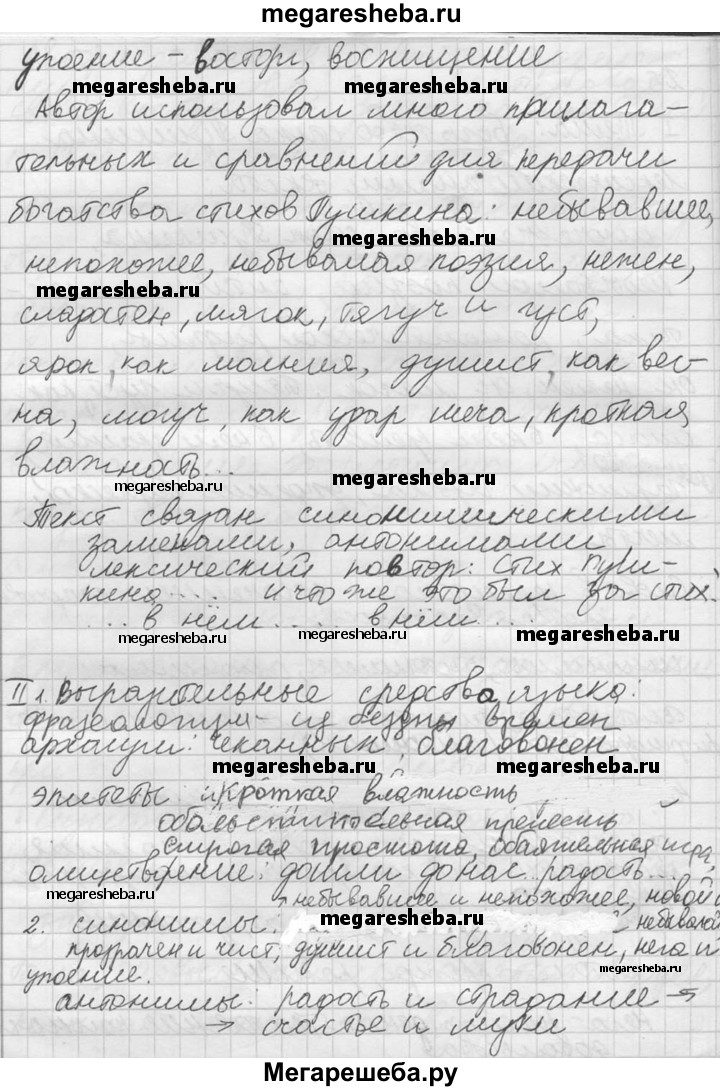 megaresheba.ru
упоение – восторг, восхищение
megaresheba.ru megaresheba.ru
Автор использовал много прилага-
тельных и сравнений для передачи
богатства стихов Пушкина: небывавшее,
megaresheba.ru
непохожее, небывалая поэзия, нежен,
megaresheba.ru
сладостен, мягок, тягуч и густ,
ярок, как молния, душист, как вес-
на, могуч, как удар меча, кроткая
влажность...
megaresheba.ru megaresheba.ru
Текст связан синонимическими
заменами, антонимами,
лексический повтор: Стих Пуш-
кина.... и что же это был за стих!
... в нём ..... в нём ....
megaresheba.ru megaresheba.ru
II 1. Выразительные средства языка:
фразеологизм – из бездны времен
архаизм: чеканных, благовонен
megaresheba.ru megaresheba.ru
эпитеты: кроткая влажность
обольстительная прелесть
строгая простота, обаятельная игра,
олицетворение: дошли до нас радость...
megaresheba.ru
небывавшее и непохожее, новой и
2. синонимы: небывалой
megaresheba.ru
прозрачен и чист, душист и благовонен, нега и
упоение.
megaresheba.ru
антонимы: радость и страдание →
→ счастье и муки
Мегарешеба.ру